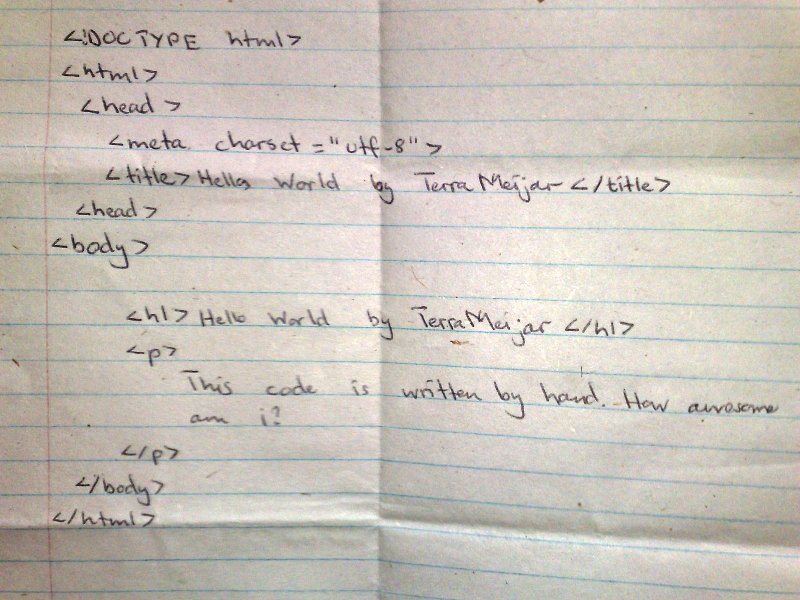 <!DOCTYPE html>
<html>
<head>
<meta charset="utf-8">
<title>Hello World by Terra Meijar</title>
<head>
<body>
<h1>Hello World by Terra Meijar</h1>
<p>
This code is written by hand. How awesome
am i?
</p>
</body>
</html>